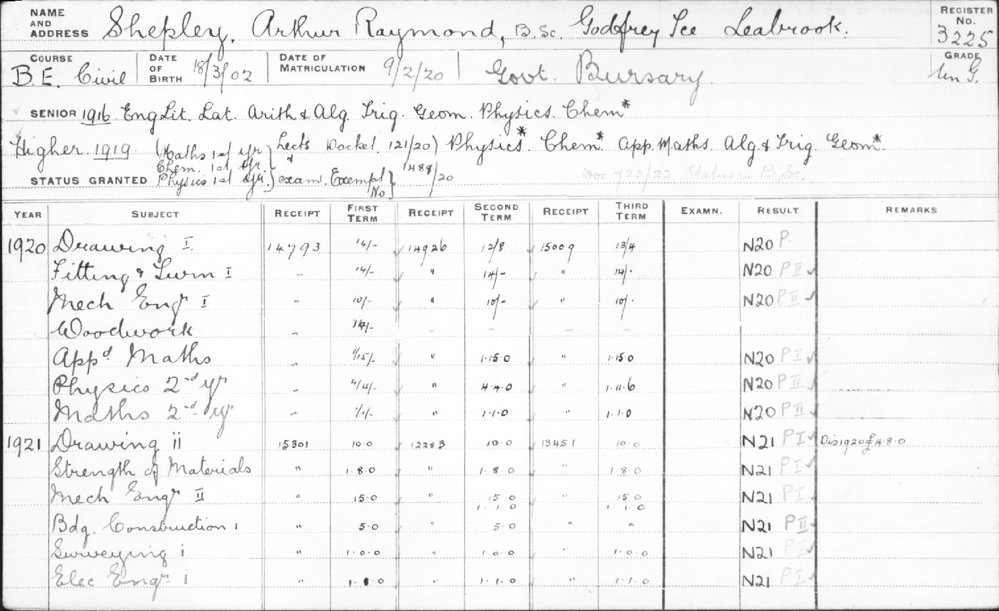 NAME AND ADDRESS Shepley, Arthur Raymond, B.Sc. Godfrey Tce Leabrook. REGISTER NO. 3225
COURSE B.E. Civil DATE OF BIRTH 18/3/02 DATE OF MATRICULATION 9/2/20 Govt. Bursary GRADE
SENIOR 1916 Eng Lit. Lat. Arith & Alg Trig. Geom. Physics. Chem*
Higher 1919 (Maths 1st yr Lects Docket 121/20) Physics*. Chem* App. Maths. Alg & Trig Geom*.
Chem. 1st yr &
STATUS GRANTED Physics 1st yr. exam. Exempt No 1488/20 Doc 723/22 Status in B.Sc.
YEAR SUBJECT RECEIPT FIRST TERM RECEIPT SECOND TERM RECEIPT THIRD TERM EXAMN. RESULT REMARKS
1920 Drawing I 14793 14/- 14926 12/8 15009 13/4 N20 P
Fitting & Turn I " 14/- " 14/- " 14/- N20 PII
Mech Engr I " 10/- " 10/- " 10/- N20 PII
Woodwork " - - -
Appd Maths " 1/15/- " 1.15.0 " 1.15.0 N20 PI
Physics 2nd yr " 4/4/- " 4.4.0 " 1.11.6 N20 PII
Maths 2nd yr " 1/1/- " 1.1.0 " 1.1.0 N20 PII
1921 Drawing ii 15301 10.0 12283 10.0 13451 10.0 N21 PI Dis 1920 £4.8.0
Strength of Materials " 1.8.0 " 1.8.0 " 1.8.0 N21 PI
Mech Engr II " 15.0 " 15.0 " 15.0 N21 PI
1.1.0 1.1.0
Bdg. Construction 1 " 5.0 " 5.0 " " N21 PII
Surveying i " 1.0.0 " 1.0.0 " 1.0.0 N21 PI
Elec Engr i " 1.1.0 " 1.1.0 " 1.1.0 N21 PI